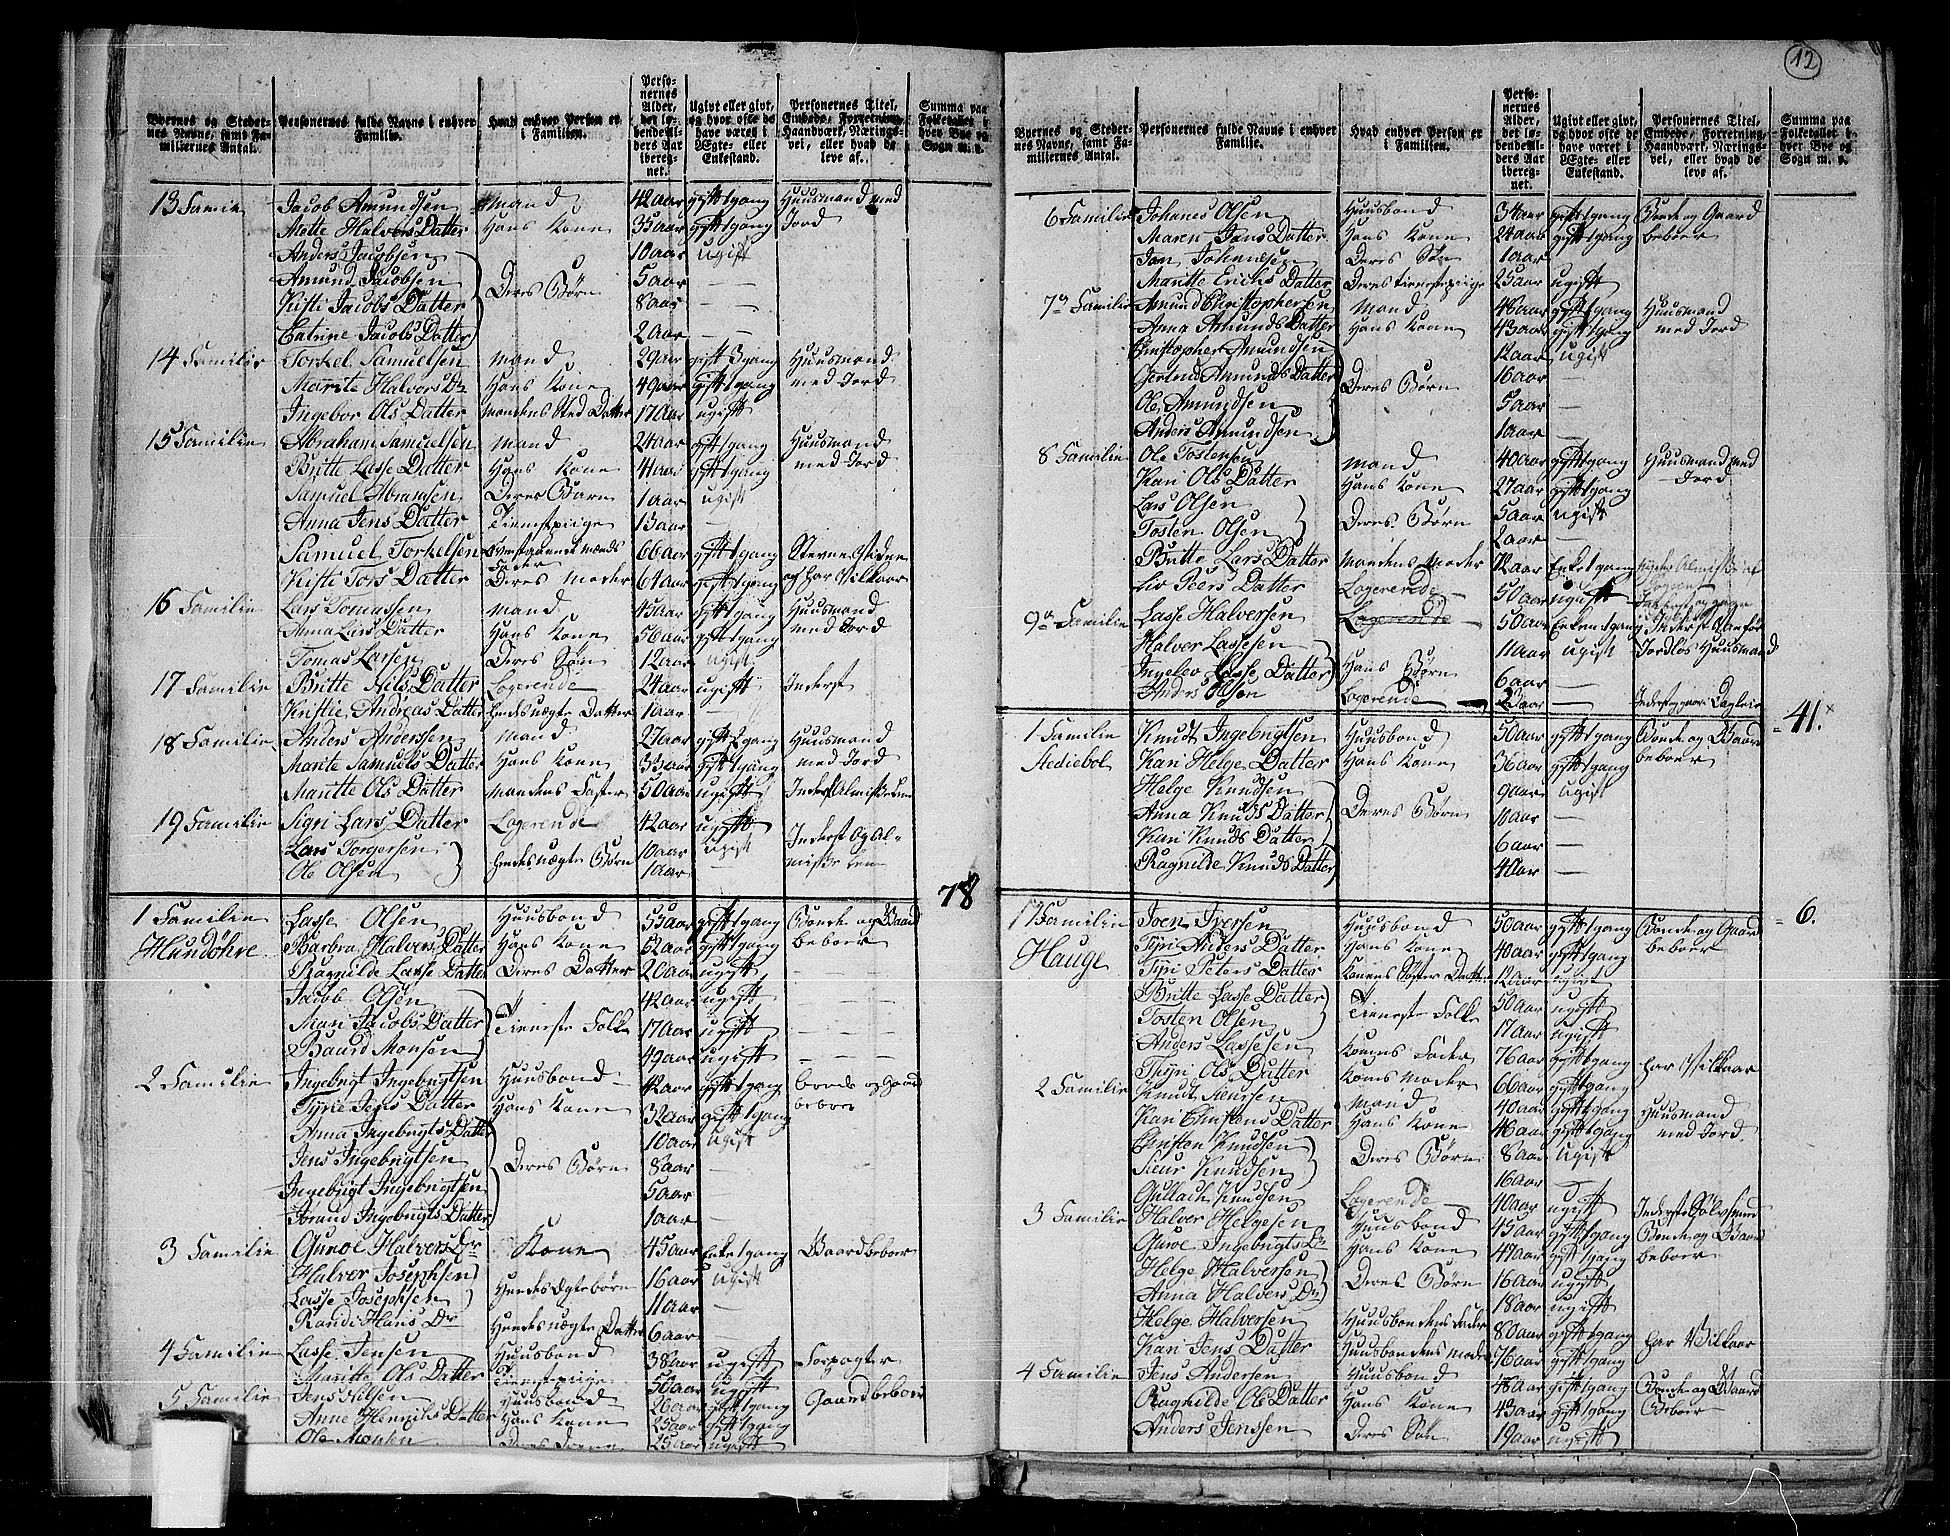 12
Byernes og Steder-nes Navne, samt Fa-miliernes Antal. Personernes fulde Navne i enhver Familie. Hvad enhver Person er i Familien. Perso-nernes Alder, det lø-bende Al-ders Aar iberegnet. Ugivt eller givt, og hvor ofte de have været i Ægte- eller Enkestand. Personernes Titel, Embede, Forretning, Haandværk, Nærings-vei, eller hvad de leve af. Summa paa Folketallet i hver Bye og Sogn m. v.
13 Familie Jacob Amundsen Mand 42 aar gift 1 gang Huusmand med
Mette Halvers Datter Hans Kone 35 aar gift 1 gang Jord
Anders Jacobsen 10 aar ugift
Amund Jacobsen Deres Børn 5 aar —
Kisti Jacobs Datter 8 aar —
Catrine Jacobs Datter 2 aar —
14 Familie Torkel Samuelsen Mand 29 aar gift 1 gang Huusmand
Maritte Halvers Dr Hans Kone 49 aar gift 1 gang med Jord
Ingebor Ols Datter Mandens Sted Datter 17 aar ugift
15 Familie Abraham Samuelsen Mand 24 aar gift 1 gang Huusmand
Britte Lasse Datter Hans Kone 41 aar gift 1 gang med Jord
Samuel Abramsen Deres Barn 1 aar ugift
Anna Jens Datter Tienestepiige 13 aar —
Samuel Torkelsen Mands Fader 66 aar gift 1 gang
Kisti Tors Datter Deres Moder 61 aar gift 1 gang og har Vilkaar
16 Familie Lars Tomassen Mand 45 aar gift 1 gang Huusmand
Anna Lars Datter Hans Kone 56 aar gift 1 gang med Jord
Tomas Larsen Deres Søn 12 aar ugift
17 Familie Britte Nils Datter Logerende 24 aar ugift Inderst
Kristie Andreas Datter Hendes uægte Datter 1 aar —
18 Familie Anders Andersen Mand 27 aar gift 1 gang Huusmand
Marite Samuels Datter Hans Kone 33 aar gift 1 gang med Jord
Maritte Ols Datter Mandens Faster 50 aar ugift
19 Familie Sigri Lars Datter Logerende 42 aar ugift Inderst og Al-
Lars Torgersen Hendes uægte Børn 10 aar ugift
Ole Olsen 1 aar
78
1 Familie Lasse Olsen Huusbond 55 aar gift 1 gang Bonde og Gaard
Mundöhre Barbra Halvers Datter Hans Kone 52 aar gift 1 gang beboer
Ragnilde Lasse Datter Deres Datter 20 aar ugift —
Jacob Olsen 42 aar ugift —
Mari Jacobs Datter Tieneste Folk 17 aar ugift —
Baard Monsen 49 aar ugift —
2 Familie Ingebrigt Ingebrigtsen Huusbond 42 aar gift 1 gang bonde og gaard
Tyrie Jens Datter Hans Kone 32 aar gift 1 gang beboer
Anna Ingebrigts Datter 10 aar ugift
Jens Ingebrigtsen Deres Børn 8 aar —
Ingebrigt Ingebrigtsen 5 aar
Jorand Ingebrigts Datter 1 aar —
3 Familie Guroe Halvers Dr Kone 45 aar Enke 1 gang Gaardbeboer
Halver Josephsen Hendes Ægtebørn 16 aar ugift
Lasse Josephsen 11 aar —
Randi Hans Dr Hendes uægte Datter 6 aar —
4 Familie Lasse Jensen Huusbond 38 aar ugift Forpagter
Maritte Ols Datter Tienestepiige 50 aar ugift
5 Familie Jens Nilsen Huusbond 26 aar gift 1 gang Gaardbeboer
Anne Henriks Datter Hans Kone 25 aar gift 1 gang
Ole Monsen 25 aar ugift
Byernes og Steder-nes Navne, samt Fa-miliernes Antal. Personernes fulde Navne i enhver Familie. Hvad enhver Person er i Familien. Perso-nernes Alder, det lø-bende Al-ders Aar iberegnet. Ugivt eller givt, og hvor ofte de have været i Ægte- eller Enkestand. Personernes Titel, Embede, Forretning, Haandværk, Nærings-vei, eller hvad de leve af. Summa paa Folketallet i hver Bye og Sogn m. v.
6 Familie Johanes Olsen Huusbond 34 aar gift 1 gang Bonde og Gaard
Maren Jans Datter Hans Kone 24 aar gift 1 gang beboer
Jan Johansen Deres Søn 1 aar
Maritte Erichs Datter Deres tienestepiige 25 aar ugift
7de Familie Amund Christophersen Mand 48 aar gift 1 gang Huusmand
Anna Amunds Datter Hans Kone 43 aar gift 1 gang med Jord
Christopher Amundsen 12 aar ugift
Gierlnd Amunds Datter Deres Børn 16 aar —
Ole Amundsen 5 aar —
Anders Amundsen 1 aar —
8 Familie Ole Tostensen Mand 40 aar gift 1 gang Huusmand med
Kari Ols Datter Hans Kone 27 aar gift 1 gang Jord
Lars Olsen Deres Børn 5 aar ugift
Tosten Olsen 2 aar —
Britte Lars Datter Mandens Moder 72 aar Enke 1 gang
Liv Peers Datter Logerende 50 aar ugift
9de Familie Lasse Halversen Logerende 50 aar Enkem 1 gang
Halver Lassesen Hans Børn 11 aar ugift Jordløs Huusmand
Ingelev Lasse Datter 6 aar —
Anders Olsen Logerende aar —
41.
1 Familie Knudt Ingebrigtsen Huusbond 50 aar gift 1 gang Bonde og Gaard
Stediebol Kari Helge Datter Hans Kone 36 aar gift 1 gang beboer
Helge Knudsen 9 aar ugift
Anna Knuds Datter Deres Børn 11 aar —
Kari Knuds Datter 6 aar —
Ragnilde Knuds Datter 4 aar —
6.
1 Familie Iven Iversen Huusbond 50 aar gift 1 gang Bonde og Gaard
Hauge Tyri Anders Datter Hans Kone 40 aar gift 1 gang beboer
Tyri Peters Datter Konens Søster Datter 12 aar ugift
Britte Lasse Datter Tieneste Folk 50 aar ugift
Tosten Olsen 17 aar ugift
Anders Lassesen Konens Fader 76 aar gift 1 gang har Vilkaar
Thyri Ols Datter Konens Moder 66 aar gift 1 gang
2 Familie Knudt Siursen Mand 40 aar gift 1 gang Huusmand
Kari Christens Datter Hans Kone 46 aar gift 1 gang med Jord.
Christen Knudsen Deres Børn 8 aar ugift
Siur Knudsen 16 aar —
Gullach Knudsen Logerende 40 aar ugift
3 Familie Halver Helgesen Huusbond 45 aar gift 1 gang Bonde og Gaard
Guroe Ingebrigts Dr Hans Kone 47 aar gift 1 gang beboer
Helge Halversen Deres Børn 16 aar ugift
Anna Halvers Dr 18 aar ugift
Helge Halversen Huusbondens fader 80 aar gift 1 gang har Vilkaar
Kari Jens Datter Huusbondens moder 76 aar gift 1 gang
4 Familie Jens Andersen Huusbond 48 aar gift 1 gang Bonde og Gaard
Ragnilde Ols Datter Hans Kone 43 aar gift 1 gang Beboer
Anders Jenssen Deres Søn 19 aar ugift